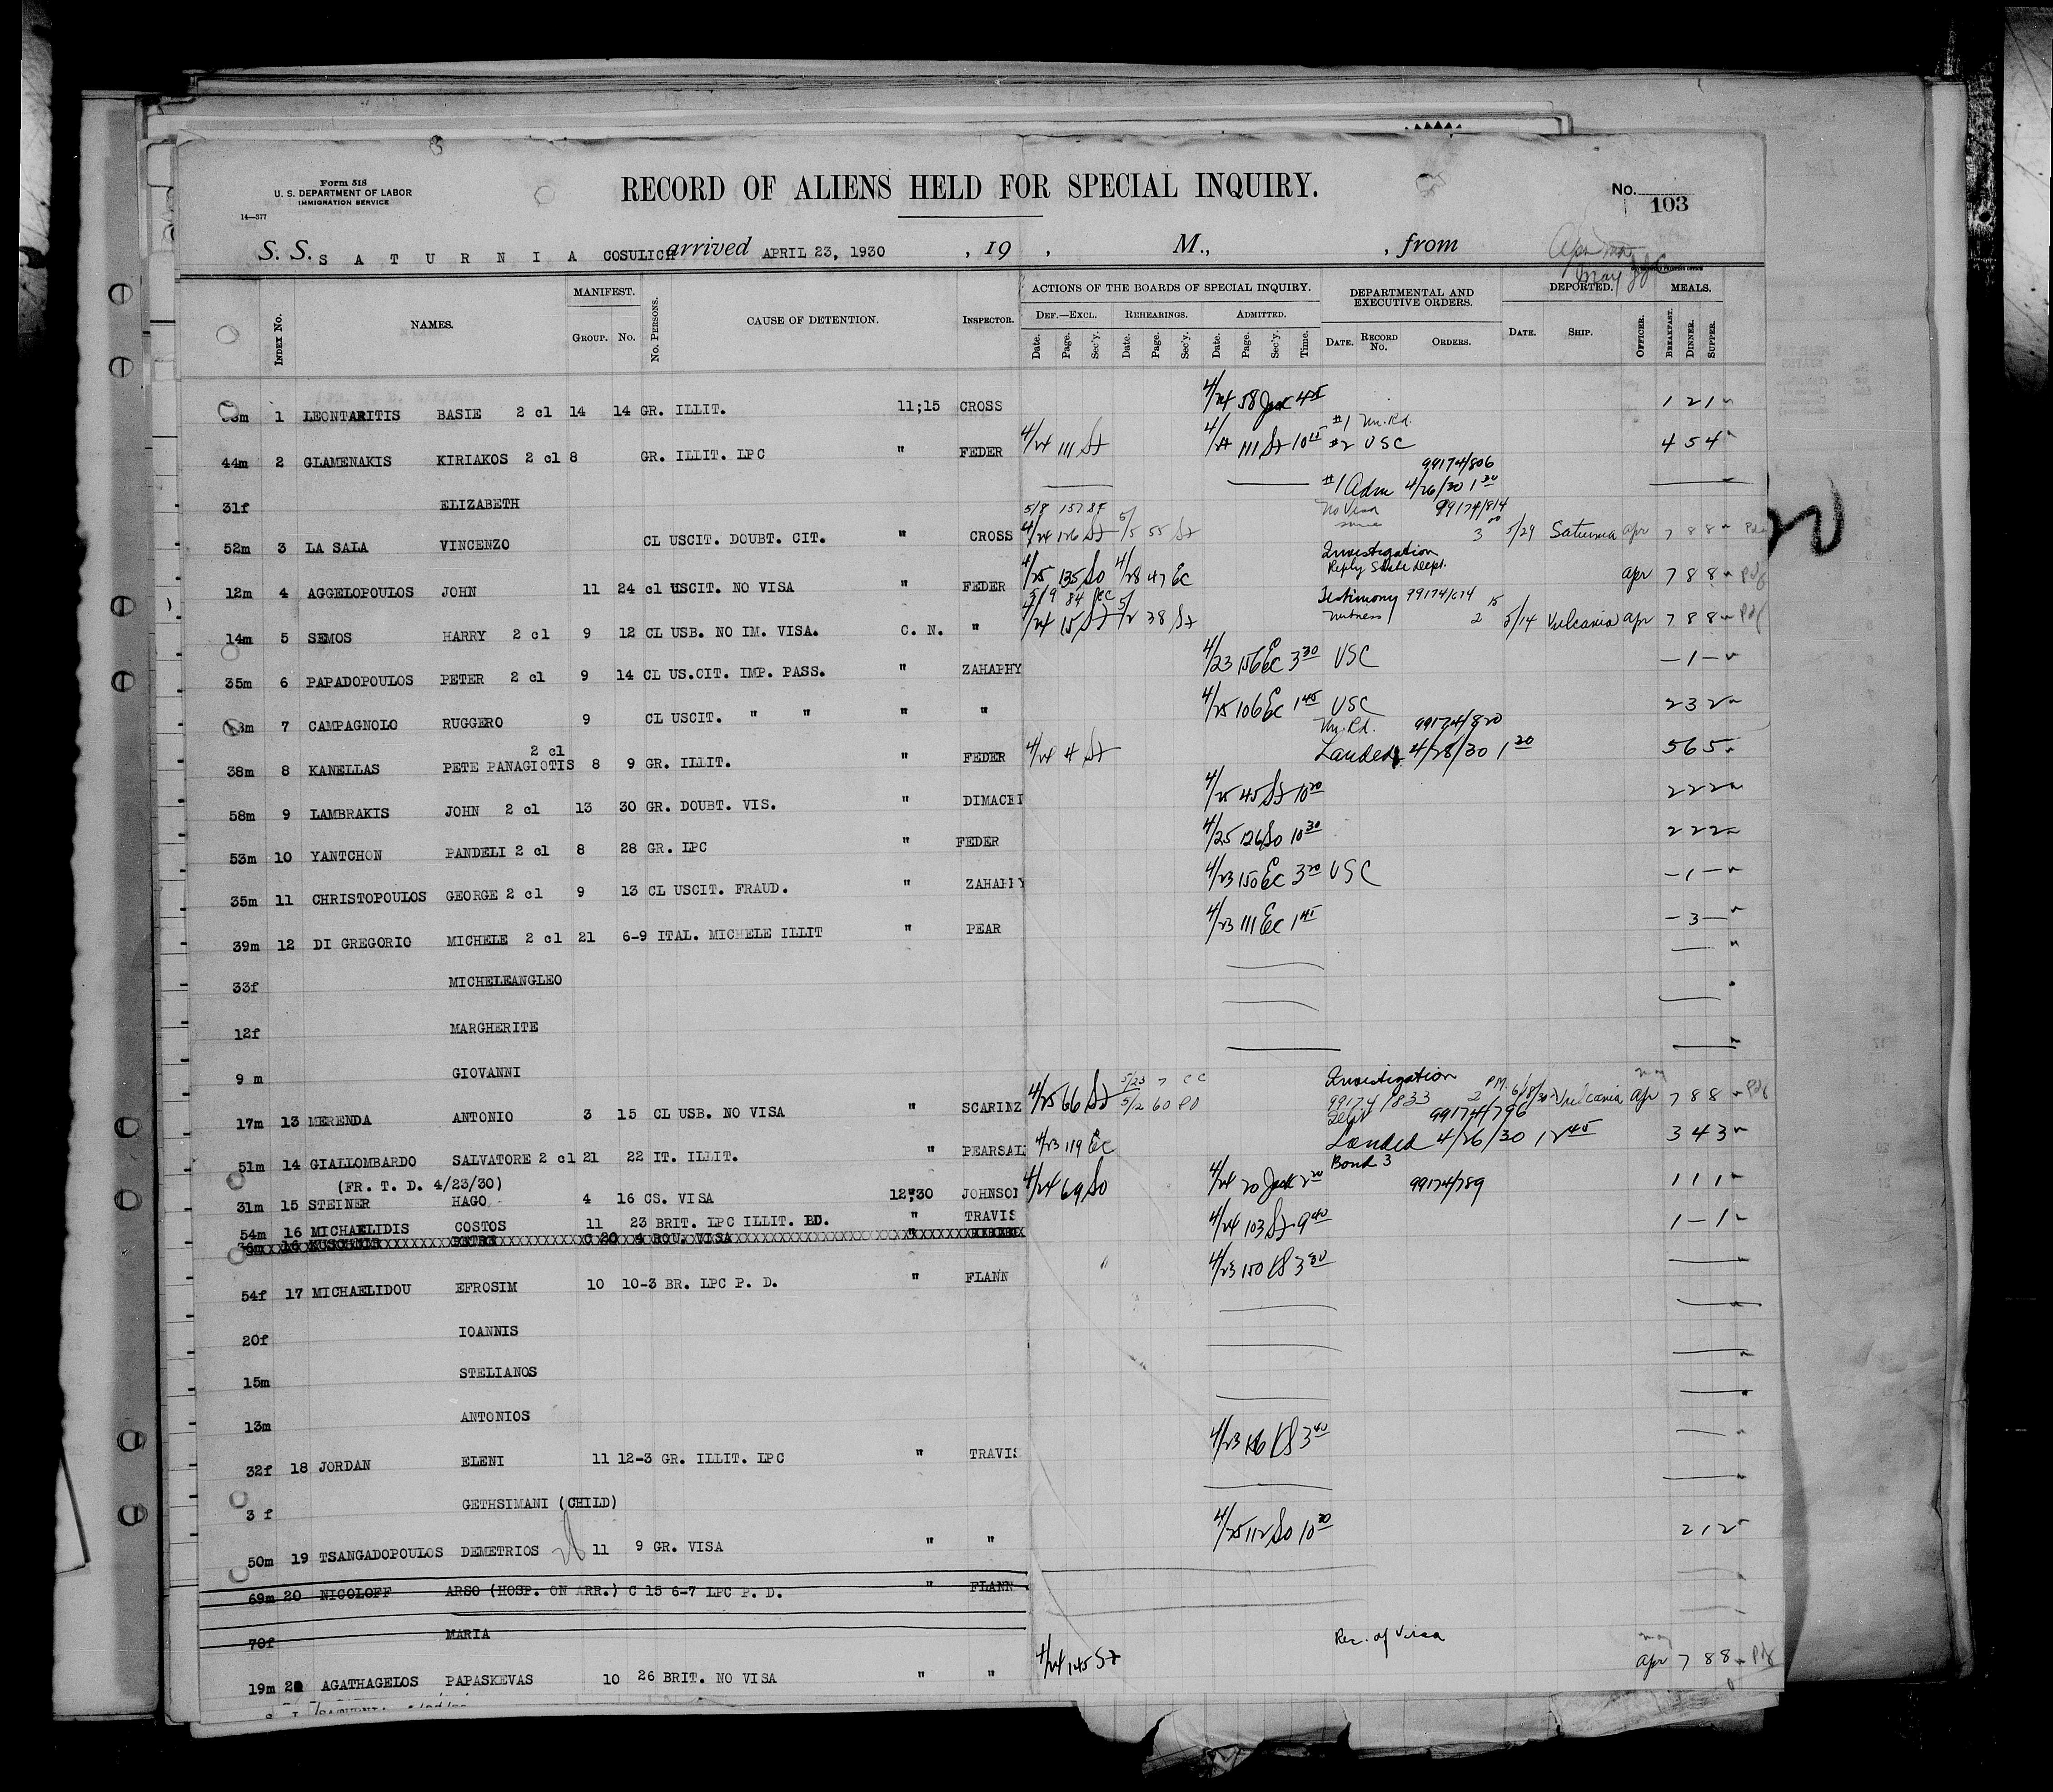 Form 518
U. S. DEPARTMENT OF LABOR
IMMIGRATION SERVICE
14—377
RECORD OF ALIENS HELD FOR SPECIAL INQUIRY.
No. 103
S. S. S A T U R N I A COSULICH arrived APRIL 23, 1930 , 19 , M., , from
INDEX No. NAMES. MANIFEST. GROUP. No. No. PERSONS. CAUSE OF DETENTION. INSPECTOR. ACTIONS OF THE BOARDS OF SPECIAL INQUIRY. DEF.—EXCL. REHEARINGS. ADMITTED. DEPARTMENTAL AND EXECUTIVE ORDERS. DEPORTED. MEALS.
Date. Page. Sec'y. Date. Page. Sec'y. Date. Page. Sec'y. Time. DATE. RECORD No. ORDERS. DATE. SHIP. OFFICER. BREAKFAST. DINNER. SUPPER.
1 LEONTARITIS BASIE 2 cl 14 14 GR. ILLIT. 11;15 CROSS 4/24 58 1 2 1
44m 2 GLAMENAKIS KIRIAKOS 2 cl 8 GR. ILLIT. LPC " FEDER 4/24 111 St 111 St 10 #2 USC 4 5 4
99174/806
31f ELIZABETH #1 Adm 4/26/30 1 30
99174/814
52m 3 LA SALA VINCENZO CL USCIT. DOUBT. CIT. " CROSS 4/24 126 St 5/5 55 St 5/29 Saturnia apr 7 8 8
Investigation
Reply State Dept.
12m 4 AGGELOPOULOS JOHN 11 24 cl USCIT. NO VISA " FEDER 4/25 135 So 4/28 47 Ec apr 7 8 8
5/9 84 Ec Testimony
14m 5 SEMOS HARRY 2 cl 9 12 CL USB. NO IM. VISA. C. N. " 4/24 15 St 5/2 38 St witness 5/14 Vulcania apr 7 8 8
35m 6 PAPADOPOULOS PETER 2 cl 9 14 CL US.CIT. IMP. PASS. " ZAHAPHY 4/23 156 Ec 3 30 USC — 1 —
7 CAMPAGNOLO RUGGERO 9 CL USCIT. " " " " 4/25 106 Ec 1 45 USC 2 3 2
99174/820
38m 8 KANELLAS PETE PANAGIOTIS 2 cl 8 9 GR. ILLIT. " FEDER 4/24 4 St Landed 4/28/30 1 20 5 6 5
58m 9 LAMBRAKIS JOHN 2 cl 13 30 GR. DOUBT. VIS. " DIMACHI 4/25 45 St 10 20 2 2 2
53m 10 YANTCHON PANDELI 2 cl 8 28 GR. LPC " FEDER 4/25 126 So 10 30 2 2 2
35m 11 CHRISTOPOULOS GEORGE 2 cl 9 13 CL USCIT. FRAUD. " ZAHAPHY 4/23 150 Ec 3 20 USC — 1 —
39m 12 DI GREGORIO MICHELE 2 cl 21 6-9 ITAL. MICHELE ILLIT " PEAR 4/23 111 Ec 1 45 — 3 —
33f MICHELEANGLEO
12f MARGHERITE
9 m GIOVANNI
Investigation
17m 13 MERENDA ANTONIO 3 15 CL USB. NO VISA " SCARINZ 4/25 66 St 5/23 7 EC 5/2 60 PO 99174/833 Vulcania apr 7 8 8
99174/796
51m 14 GIALLOMBARDO SALVATORE 2 cl 21 22 IT. ILLIT. " PEARSAL 4/23 119 Ec Landed 4/26/30 12 45 3 4 3
(FR. T. D. 4/23/30) Bond 3
31m 15 STEINER HAGO 4 16 CS. VISA 12"30 JOHNSON 4/24 69 So 4/24 20 2 20 99174/789 1 1 1
54m 16 MICHAELIDIS COSTOS 11 23 BRIT. LPC ILLIT. PD. " TRAVIS 4/24 103 St 9 40 1 — 1
54f 17 MICHAELIDOU EFROSIM 10 10-3 BR. LPC P. D. " FLANN 4/23 150
20f IOANNIS
15m STELIANOS
13m ANTONIOS
32f 18 JORDAN ELENI 11 12-3 GR. ILLIT. LPC " TRAVIS 4/23 3 40
3 f GETHSIMANI (CHILD)
50m 19 TSANGADOPOULOS DEMETRIOS 11 9 GR. VISA " " 4/25 112 So 10 30 2 1 2
69m 20 NICOLOFF ARSO (HOSP. ON ARR.) C 15 6-7 LPC P. D. " FLANN
70f MARIA
Rec. of Visa
19m 20 AGATHAGELOS PAPASKEVAS 10 26 BRIT. NO VISA " " 4/24 145 St apr 7 8 8